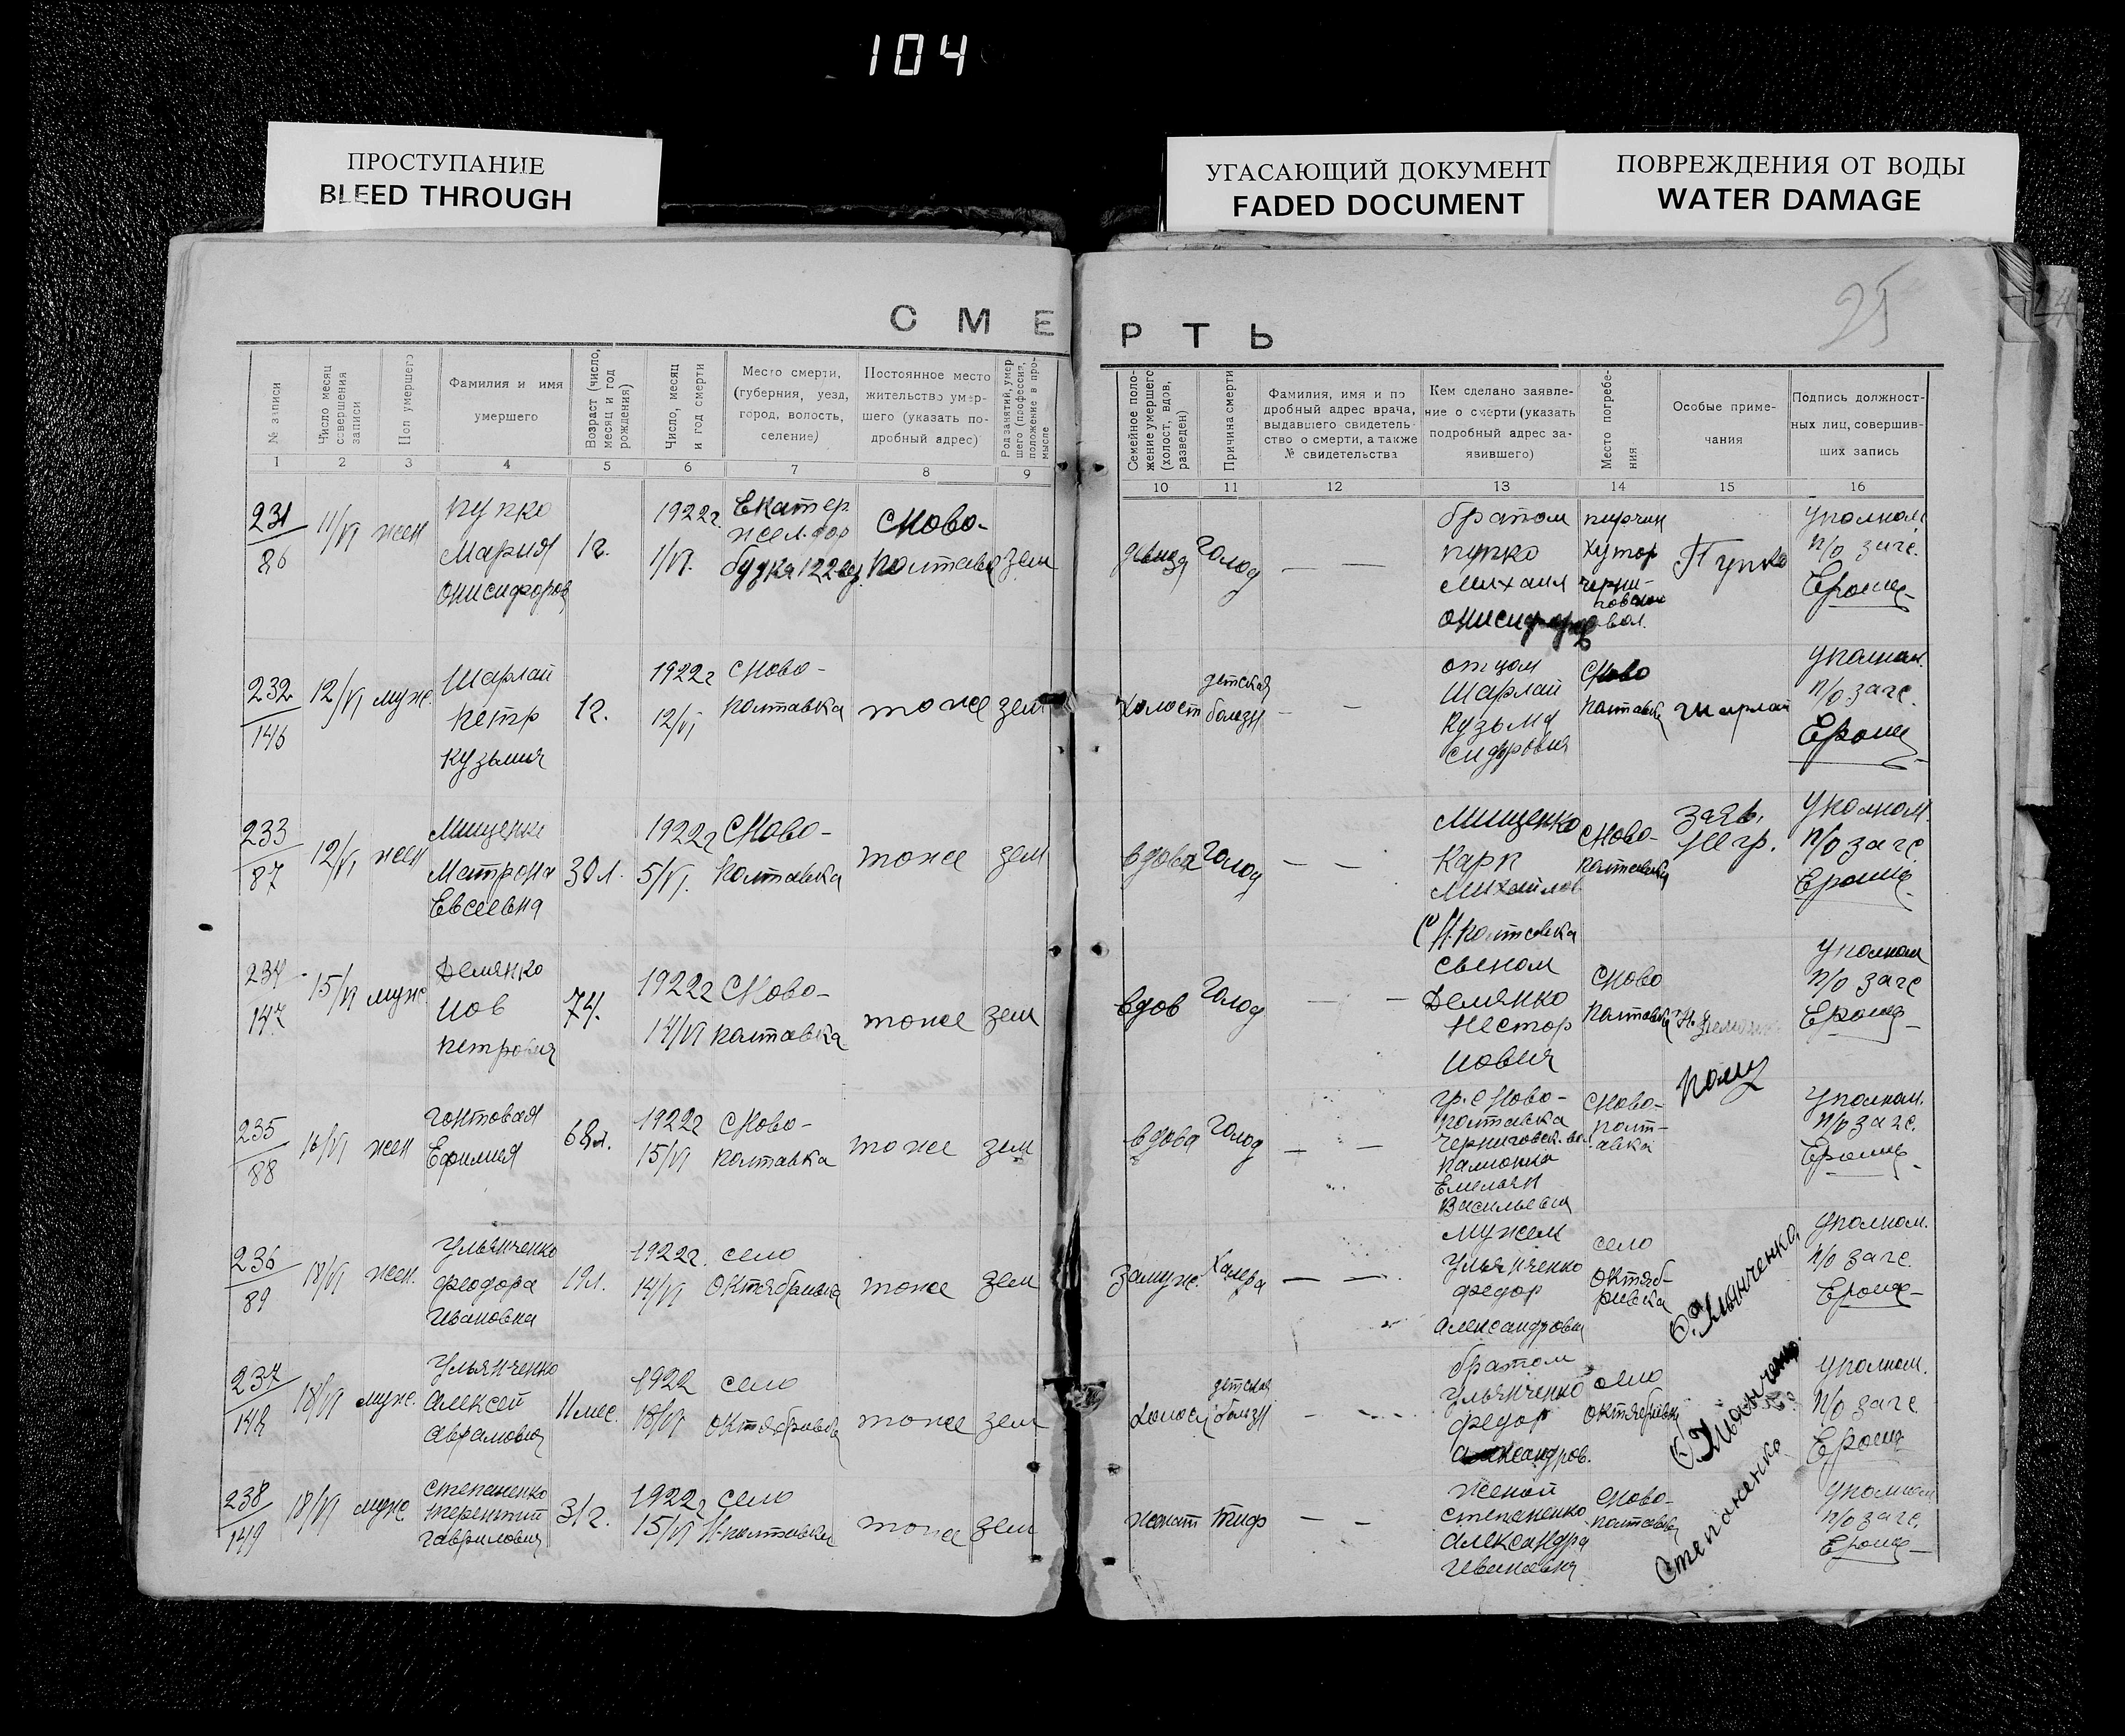 104
ПРОСТУПАНИЕ
BLEED THROUGH
УГАСАЮЩИЙ ДОКУМЕНТ
FADED DOCUMENT
ПОВРЕЖДЕНИЯ ОТ ВОДЫ
WATER DAMAGE
25
СМЕРТЬ
№ записи
Число месяц совершения записи
Пол умершего
Фамилия и имя
умершего
Возраст (число, месяц и год рождения)
Число, месяц и год смерти
Место смерти,
(губерния, уезд,
город, волость,
селение)
Постоянное место
жительство умер-
шего (указать по-
дробный адрес)
Род занятий, умер
шего (профессия,
положение в про-
мысле
Семейное поло-
жение умершего
(холост, вдов,
разведен)
Причина смерти
Фамилия, имя и по
дробный адрес врача,
выдавшего свидетель-
ство о смерти, а также
№ свидетельства
Кем сделано заявле-
ние о смерти (указать
подробный адрес за-
явившего)
Место погребе-
ния
Особые приме-
чания
Подпись должност-
ных лиц, совершив-
ших запись
1 2 3 4 5 6 7 8 9 10 11 12 13 14 15 16
231
86
11/VI
жен
Пупко
Мария
Онисифоров
1 г.
1922 г
1/VI.
Екатер
жел. дор
будка 122
С Ново-
Полтавка
зем
девица
Голод
— —
братом
Пупко
Михаил
Онисифор
хутор
Черни-
говской
вол.
Пупко
Уполном.
п/о загс.
232
146
12/VI
муж.
Шарлай
Петр
Кузьмич
1 г.
1922 г
12/VI
С Ново-
Полтавка
тоже
зем
холост
детская
болезн
— —
отцом
Шарлай
Кузьма
Сидорович
С Ново
Полтавка
Шарлай
Уполном.
п/о загс.
233
87
12/VI
жен
Мищенко
Матрона
Евсеевна
30 л.
1922 г
5/VI.
С Ново-
Полтавка
тоже
зем
вдова
Голод
— —
Мищенко
Карп
Михайлов
С Н. Полтавка
С Ново-
Полтавка
Заяв.
не гр.
Уполном.
п/о загс.
234
147
15/VI
муж
Демянко
Иов
Петрович
74.
1922 г
14/VI
С Ново-
Полтавка
тоже
зем
вдов
Голод
— —
сыном
Демянко
Нестор
Иович
С Ново
Полтавка
Уполном
п/о загс
235
88
16/VI
жен
Гонтовая
Ефимия
68 л.
1922 г
15/VI
С Ново-
Полтавка
тоже
зем
вдова
Голод
— —
гр. с Ново-
Полтавка
Черниговск. во.
Емельян
Васильевич
С Ново-
Полт-
авка
Уполном.
п/о загс.
236
89
18/VI
жен.
Ульянченко
Феодора
Ивановна
19 л.
1922 г.
14/VI
село
Октябрьевка
тоже
зем
замуж.
Холера
— —
мужем
Ульянченко
Федор
Александрович
село
Октяб-
ривка
Ульянченко
Уполном.
п/о загс.
237
148
18/VI
муж.
Ульянченко
Алексей
Аврамович
11 мес.
1922
18/VI
село
Октябрьевка
тоже
зем
холост
детская
болезн
— —
братом
Ульянченко
Федор
Александров.
село
Октябривка
Ульянченко
Уполном.
п/о загс
238
149
18/VI
муж
Степаненко
Терентий
Гаврилович
31 г.
1922 г
15/VI
село
Н-Полтавка
тоже
зем
женат
Тиф
— —
женой
Степаненко
Александра
Ивановна
С Ново-
Полтавка
Степаненко
Уполном
п/о загс.